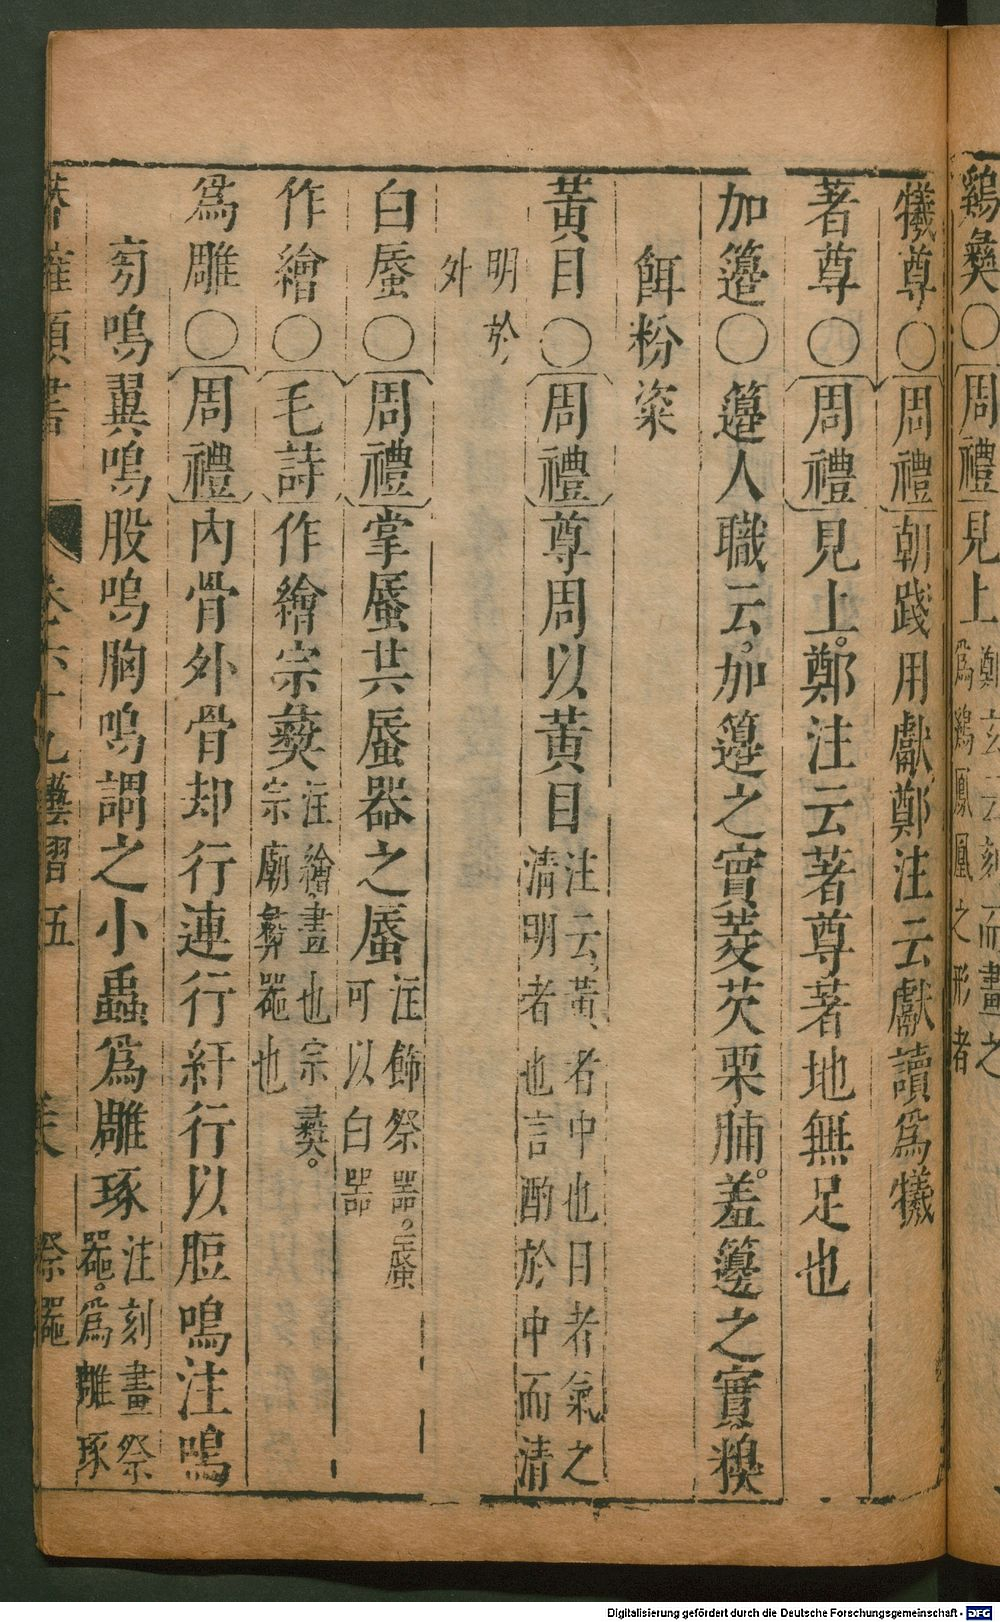 鷄彝○周禮見上鄭玄云刻而畫之
爲鷄鳳凰之形者
犧尊○周禮朝踐用獻鄭注云獻讀爲犧
著尊○周禮見上鄭注云著尊著地無足也
加籩○籩人職云加籩之實菱芡栗脯羞籩之實糗
餌粉粢
黃目○周禮尊周以黃目注云黃者中也目者氣之
清明者也言酌於中而清
明於
外
白蜃○周禮掌蜃共蜃器之蜃注飾祭器
可以白器
作繪○毛詩作繪宗彝注繪畫也宗彝
宗廟彝器也
爲雕○周禮內骨外骨却行連行紆行以脰鳴注鳴
旁鳴翼鳴股鳴胸鳴謂之小蟲爲雕琢注刻畫祭
器爲雕琢
潛確類書 卷六十九藝習五 祭器
Digitalisierung gefördert durch die Deutsche Forschungsgemeinschaft - DFG